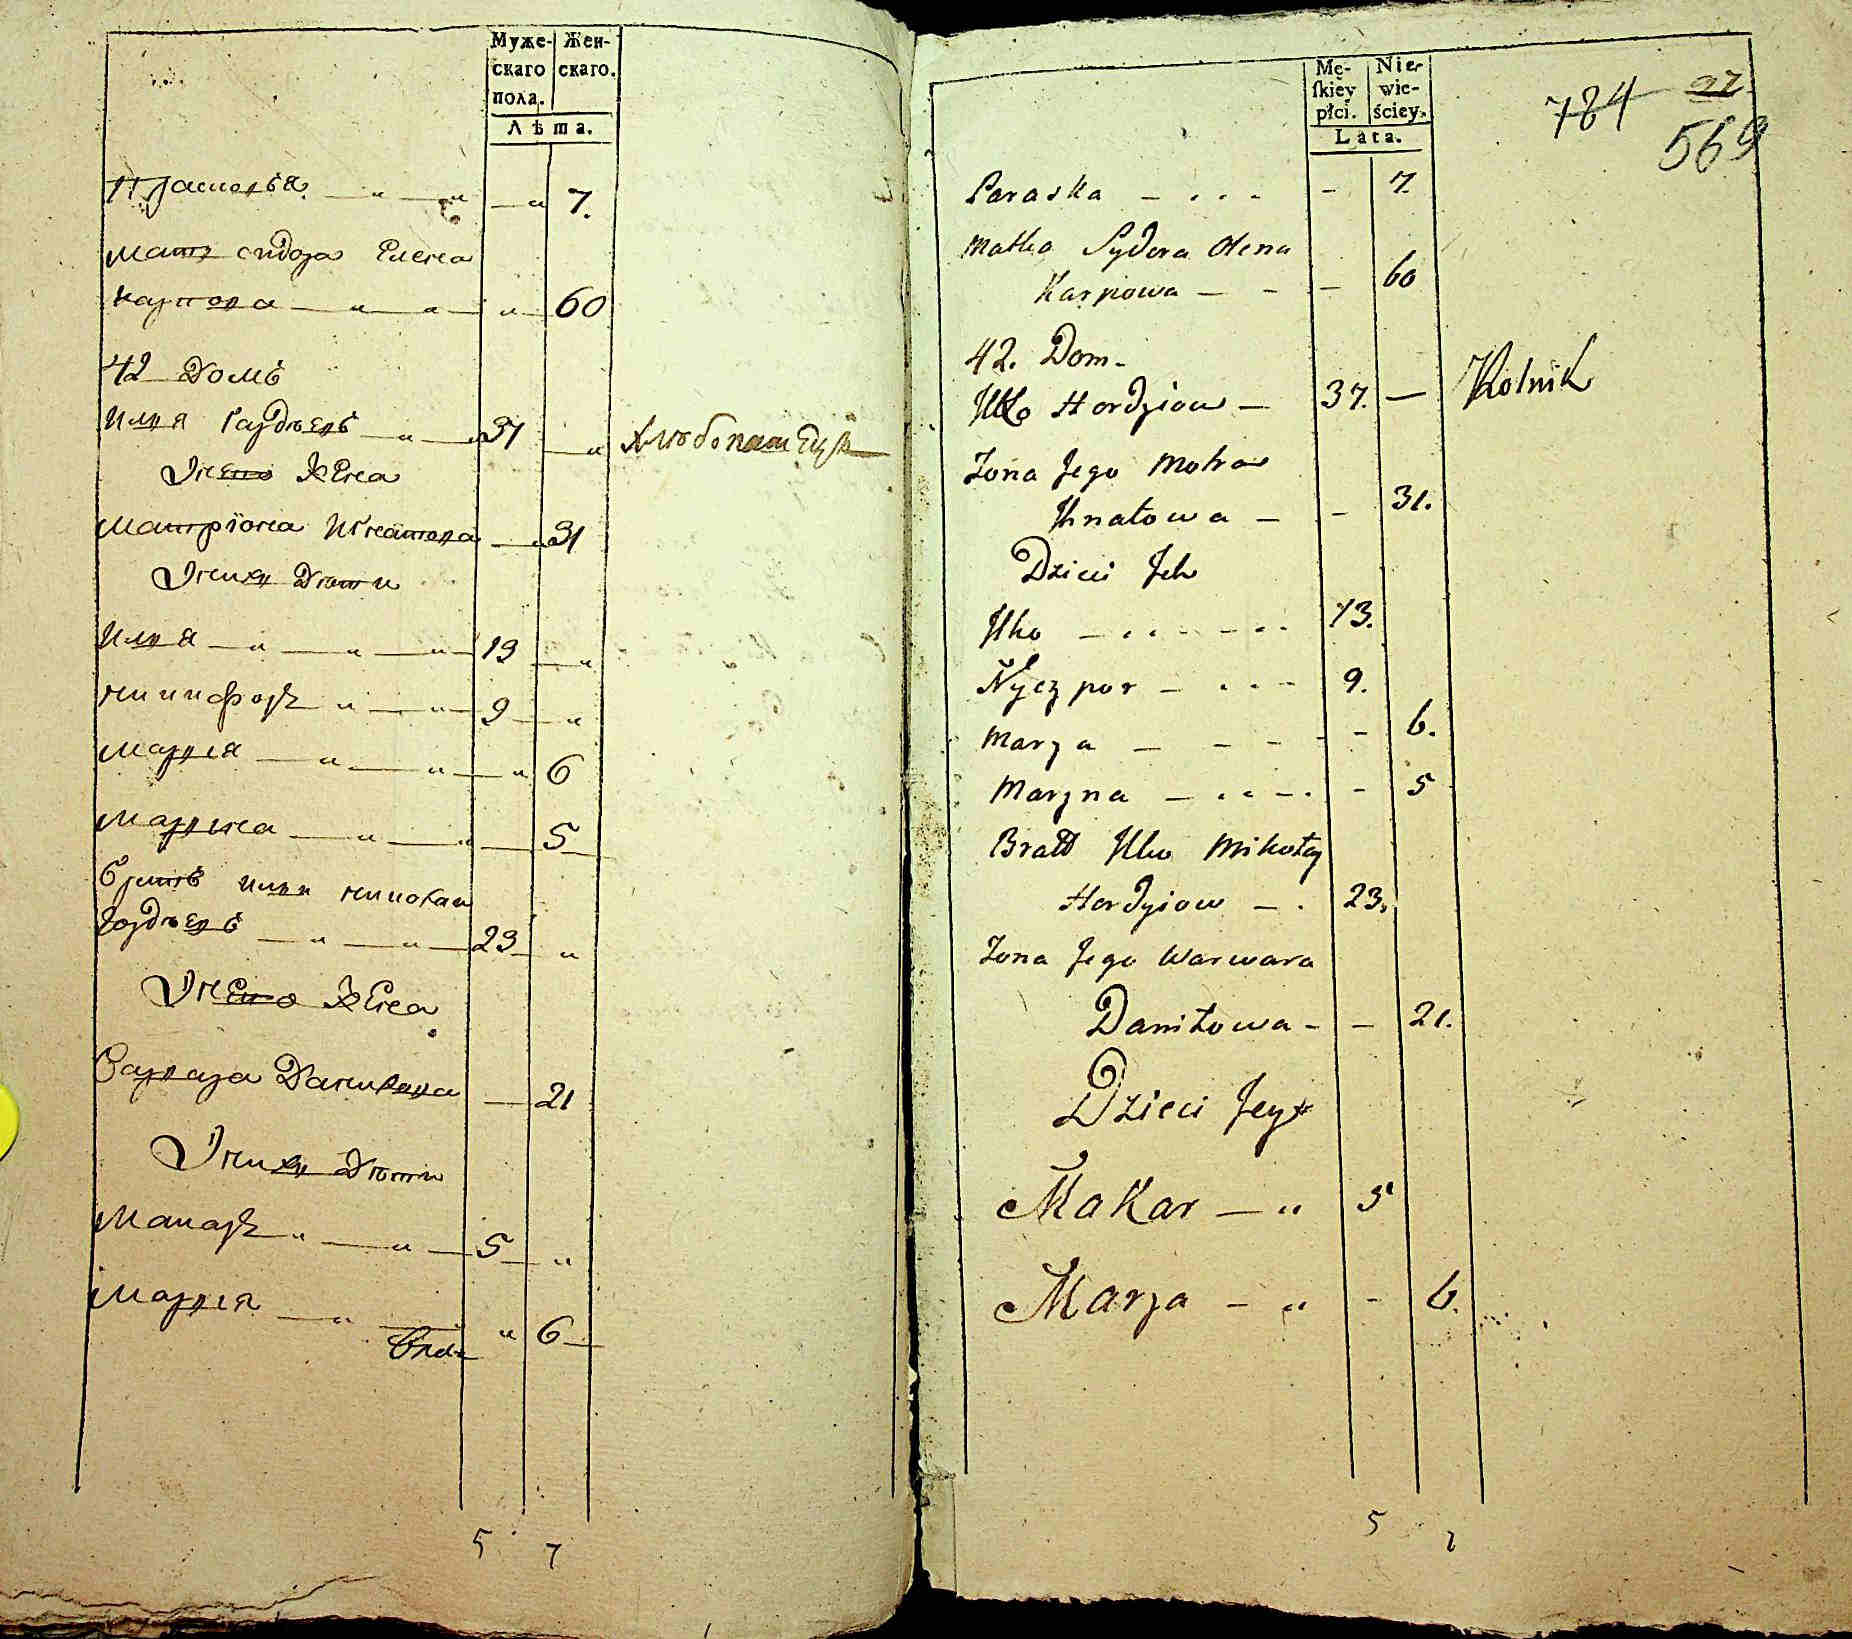 Муже-
скаго
пола.
Жен-
скаго.
Лѣта.
Прасковья 7.
мать сидора Елена
Карпова 60
42 Домъ
Илья Гардѣевъ 37 Хлѣбопашецъ
У него Жена
Матріона Игнатова 31
У них Дѣти
Илья 13
никифоръ 9
марья 6
марина 5
братъ ильи николай
Гордѣевъ 23
У него Жена
Варвара Данилова 21
У них Дѣти
Макаръ 5
Марья 6
5 7
Mę-
skiey
płci.
Nie-
wie-
ściey.
Lata.
784 27
569
Paraska - 7.
Matka Sydora Olena
Karpowa - 60
42. Dom.
Ilko Hordziow 37. — Rolnik
Zona Jego Motra
Ihnatowa - 31.
Dzieci Ich
Ilko 13.
Nyczpor 9.
Marya - 6.
Maryna - 5
Bratt Ilko Mikołay
Hordyiow 23.
Zona Jego Warwara
Daniłowa - 21.
Dzieci Jey
Makar 5
Marya - 6.
5